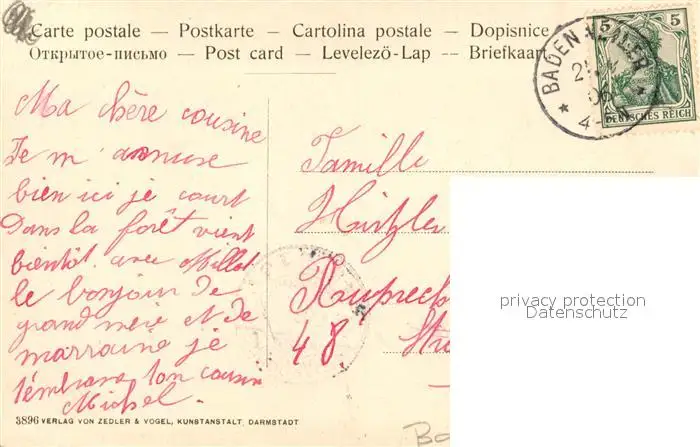 Carte postale — Postkarte — Cartolina postale — Dopisnice
Открытое-письмо — Post card — Levelező-Lap — Briefkaart
5 5
BADEN
06
DEUTSCHES REICH
Ma chère cousine
Je m'amuse
bien ici je court
Dans la forêt vient
bientôt avec Millot
le bonjour de
grand mère et de
marraine je
t'embrasse ton cousin
Michel.
Familie
Hirtzler
Ruprech
48. Str
privacy protection
Datenschutz
3896 VERLAG VON ZEDLER & VOGEL, KUNSTANSTALT, DARMSTADT